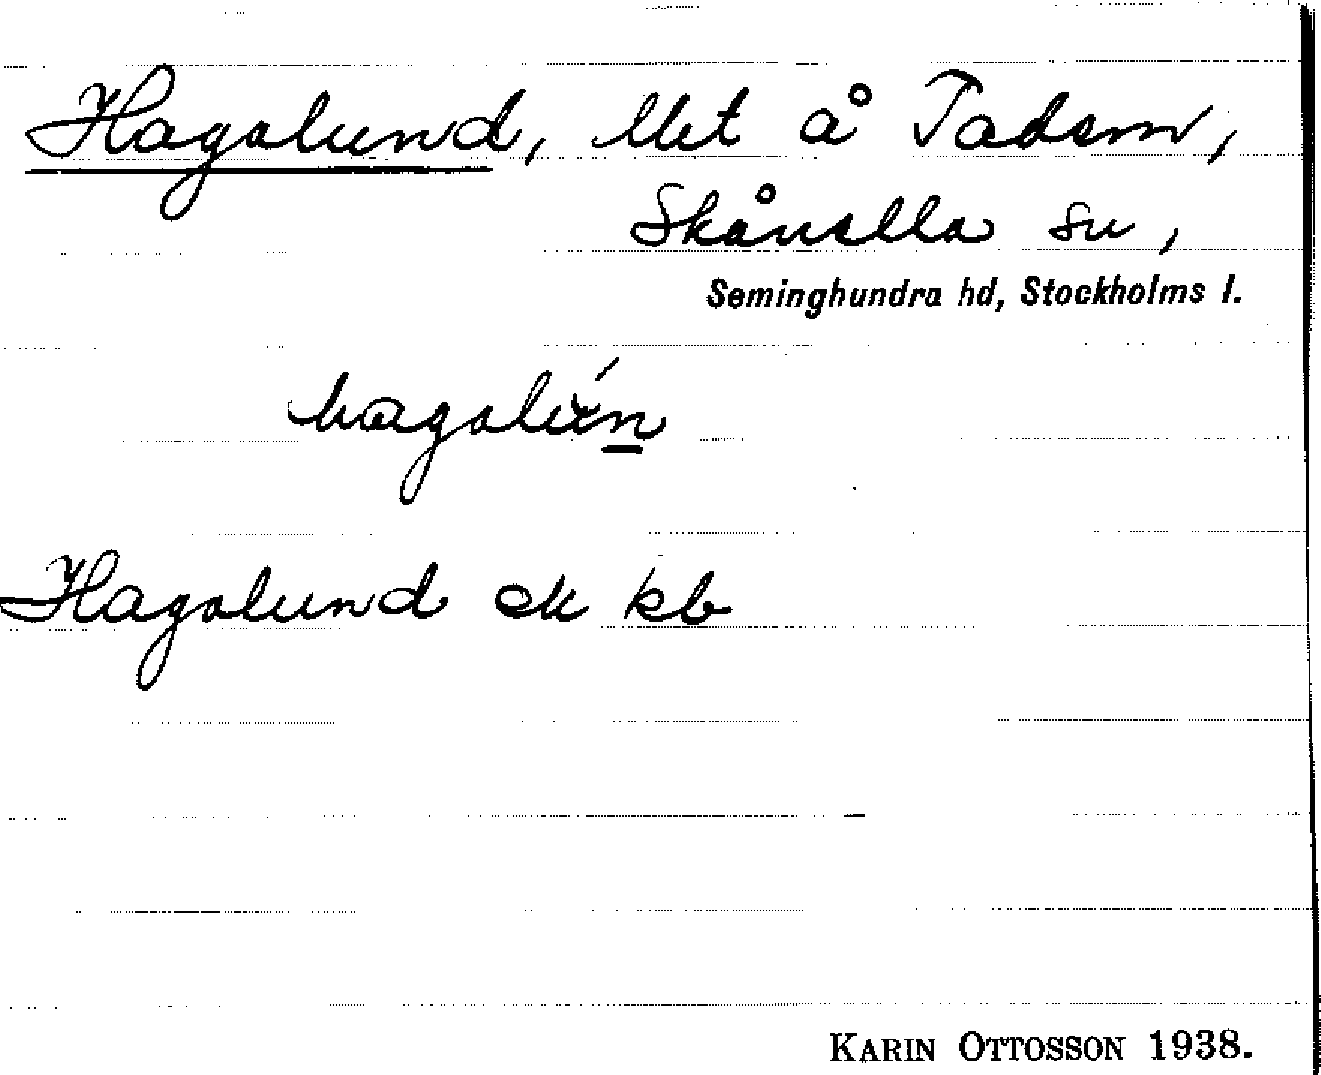 Hagalund, llet å Tadem,
Skånella sn,
Seminghundra hd, Stockholms l.
hagalún
Hagalund ek kb
KARIN OTTOSSON 1938.